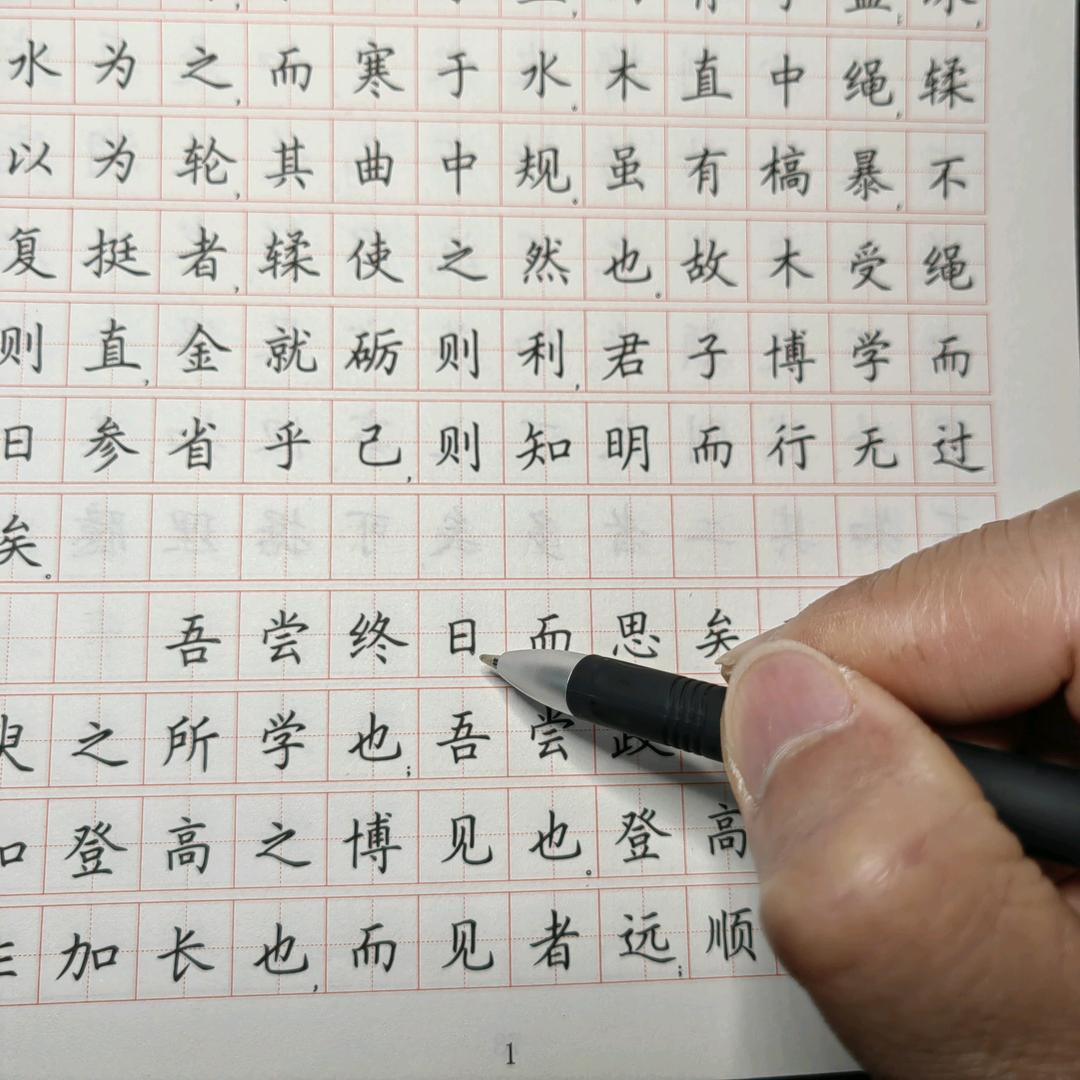 水为之，而寒于水。木直中绳，𫐓
以为轮，其曲中规。虽有槁暴，不
复挺者，𫐓使之然也。故木受绳
则直，金就砺则利，君子博学而
日参省乎己，则知明而行无过
矣。
吾尝终日而思矣
之所学也；吾尝
登高之博见也。登高
加长也，而见者远；顺
1